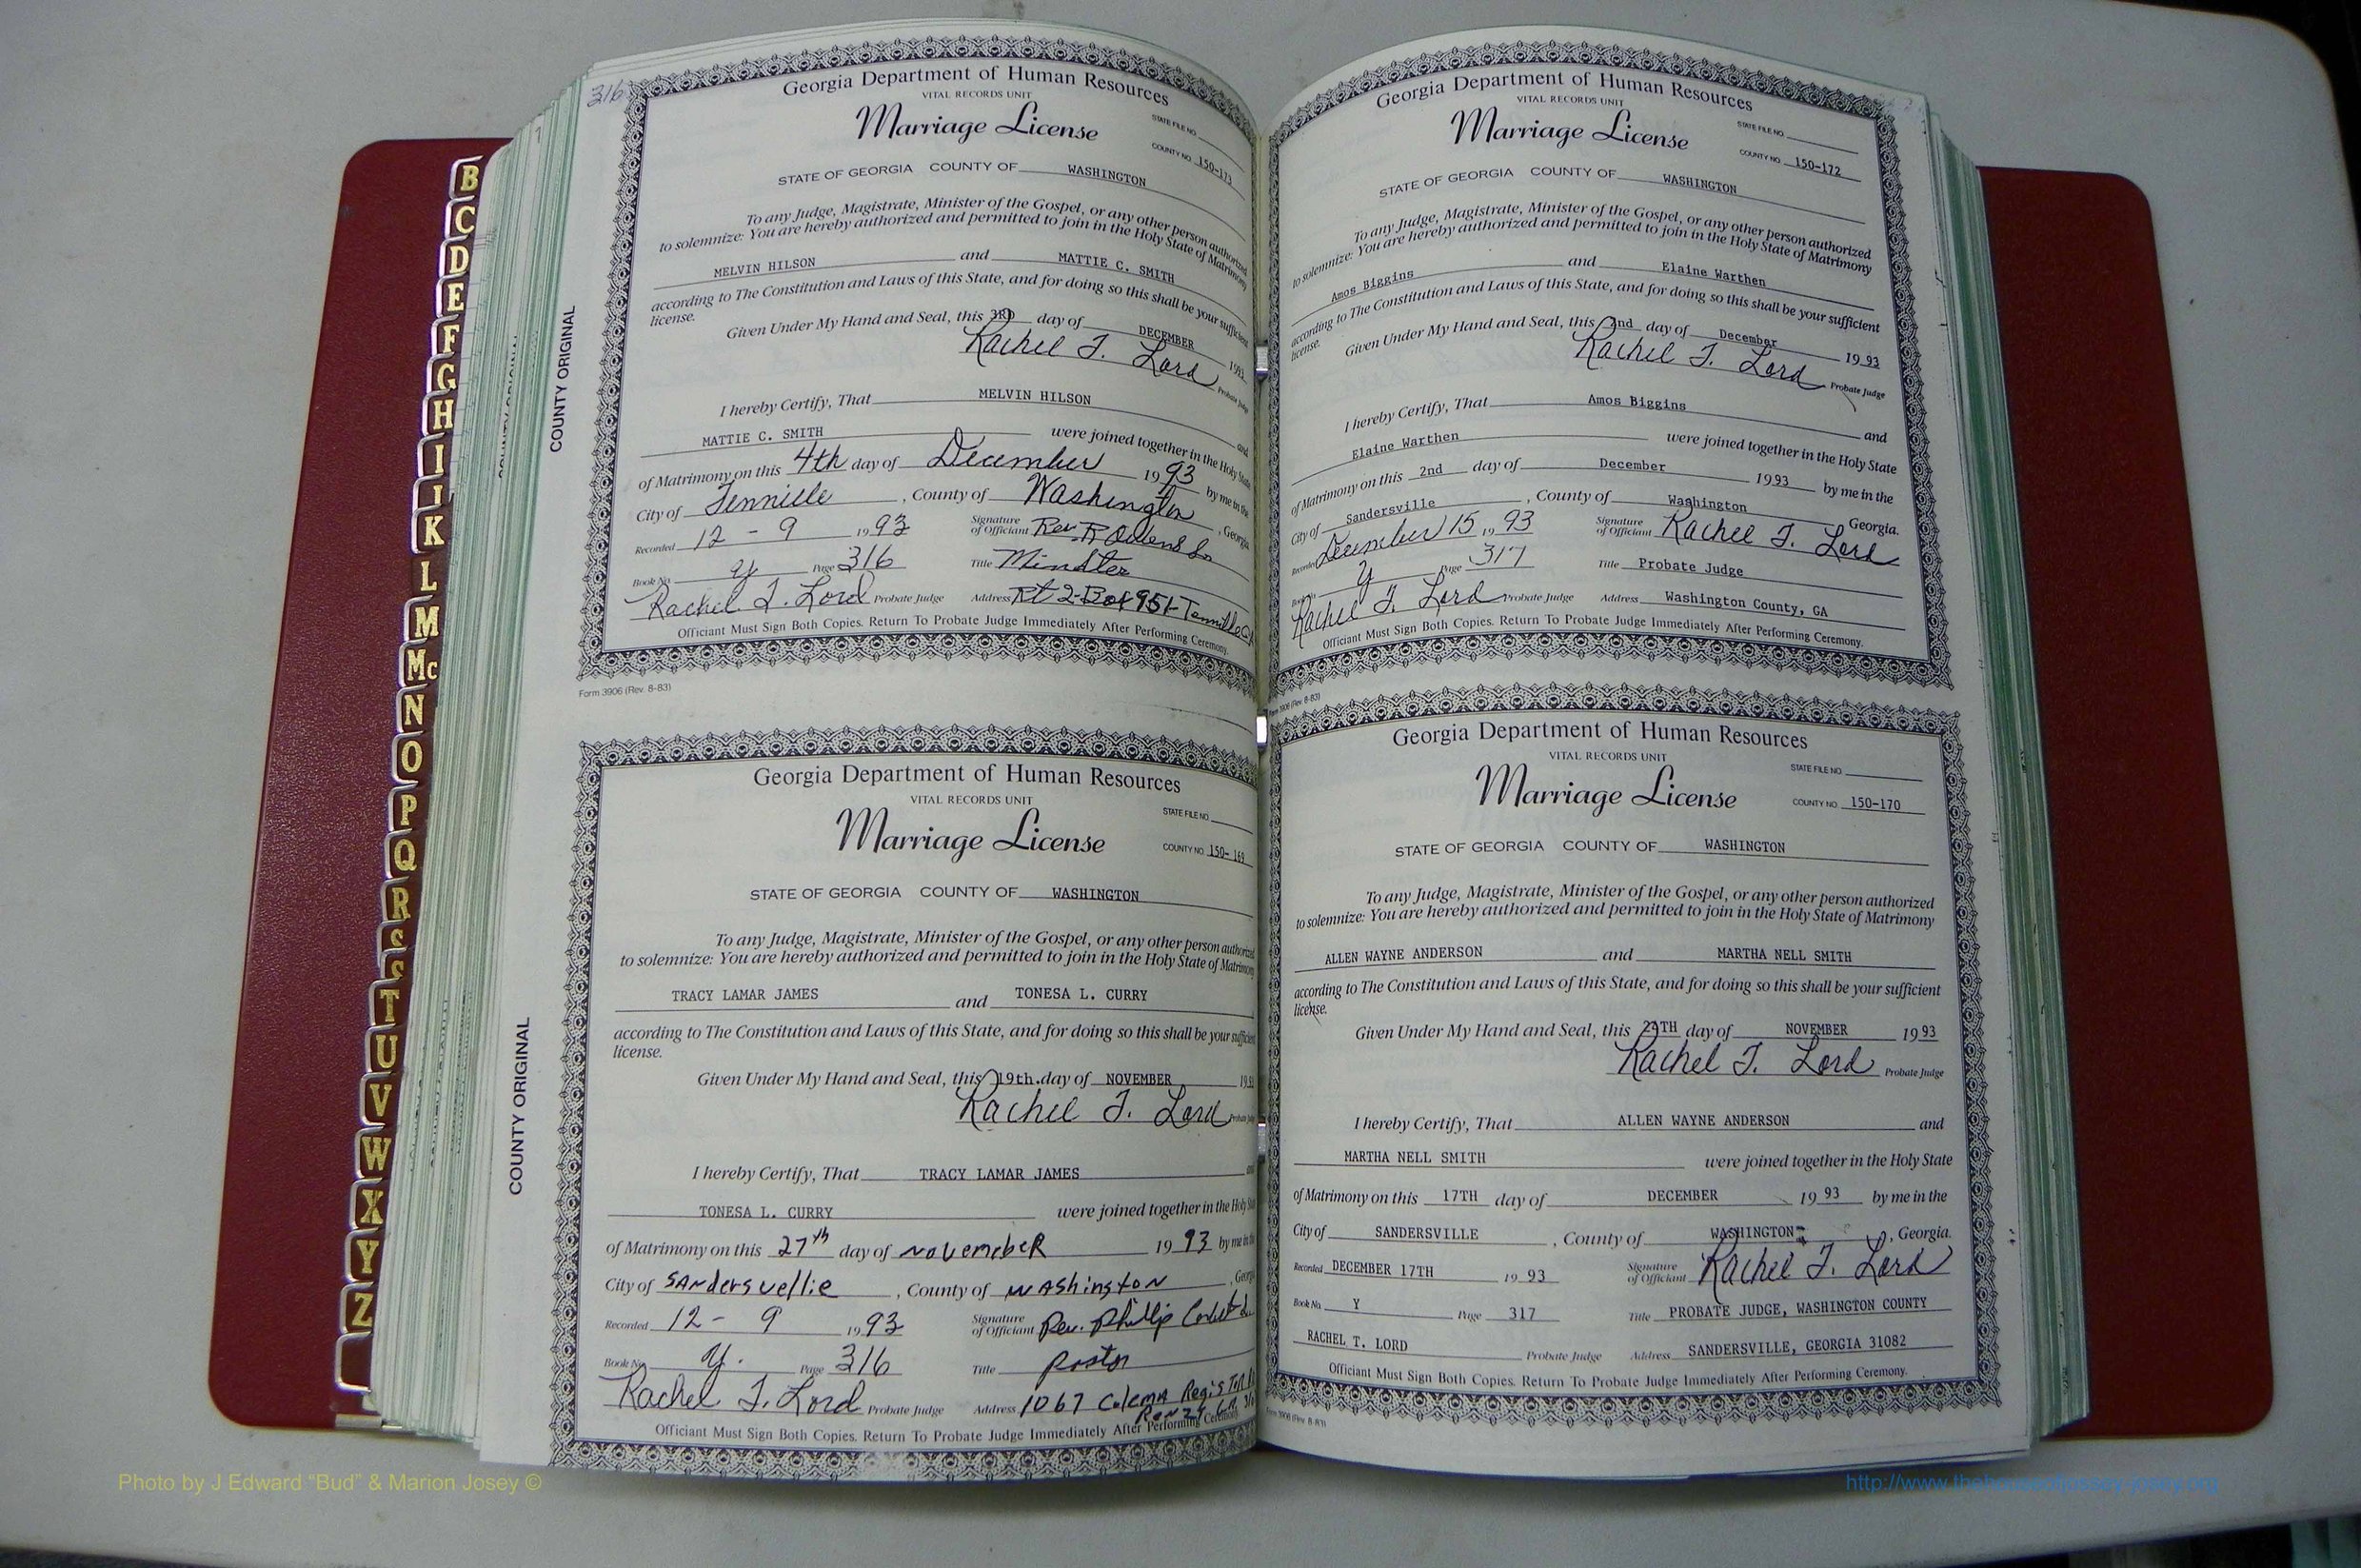 B
C
D
E
F
G
H
I
J
K
L
M
Mc
N
O
P
Q
R
S
S
T
U
V
W
X
Y
Z
316
COUNTY ORIGINAL
Georgia Department of Human Resources
VITAL RECORDS UNIT
Marriage License
STATE FILE NO.
COUNTY NO. 150-173
STATE OF GEORGIA COUNTY OF WASHINGTON
To any Judge, Magistrate, Minister of the Gospel, or any other person authorized
to solemnize: You are hereby authorized and permitted to join in the Holy State of Matrimony
MELVIN HILSON and MATTIE C. SMITH
according to The Constitution and Laws of this State, and for doing so this shall be your sufficient
license.
Given Under My Hand and Seal, this 3RD day of DECEMBER 1993
Rachel T. Lord Probate Judge
I hereby Certify, That MELVIN HILSON and
MATTIE C. SMITH were joined together in the Holy
of Matrimony on this 4th day of December 1993 by me in the
City of Tennille, County of Washington, Georgia
Recorded 12 - 9 1993 Signature of Officiant Rev. R Owens
Book No. Y Page 316 Title Minister
Rachel T. Lord Probate Judge Address Rt 2 Box 951 Tennille
Officiant Must Sign Both Copies. Return To Probate Judge Immediately After Performing Ceremony.
Form 3906 (Rev. 8-83)
COUNTY ORIGINAL
Georgia Department of Human Resources
VITAL RECORDS UNIT
Marriage License
STATE FILE NO.
COUNTY NO. 150- 169
STATE OF GEORGIA COUNTY OF WASHINGTON
To any Judge, Magistrate, Minister of the Gospel, or any other person authorized
to solemnize: You are hereby authorized and permitted to join in the Holy State of Matrimony
TRACY LAMAR JAMES and TONESA L. CURRY
according to The Constitution and Laws of this State, and for doing so this shall be your sufficient
license.
Given Under My Hand and Seal, this 19th. day of NOVEMBER
Rachel T. Lord Probate Judge
I hereby Certify, That TRACY LAMAR JAMES and
TONESA L. CURRY were joined together in the Holy
of Matrimony on this 27th day of November 1993 by me in the
City of Sandersvellie, County of Washington
Recorded 12 - 9 1993 Signature of Officiant Rev. Phillip
Book No. Y. Page 316 Title Pastor
Rachel T. Lord Probate Judge Address 1067
Officiant Must Sign Both Copies. Return To Probate Judge Immediately After Performing Ceremony.
Georgia Department of Human Resources
VITAL RECORDS UNIT
Marriage License
STATE FILE NO.
COUNTY NO. 150-172
STATE OF GEORGIA COUNTY OF WASHINGTON
To any Judge, Magistrate, Minister of the Gospel, or any other person authorized
to solemnize: You are hereby authorized and permitted to join in the Holy State of Matrimony
Amos Biggins and Elaine Warthen
according to The Constitution and Laws of this State, and for doing so this shall be your sufficient
license.
Given Under My Hand and Seal, this 2nd day of December 1993
Rachel T. Lord Probate Judge
I hereby Certify, That Amos Biggins and
Elaine Warthen were joined together in the Holy State
of Matrimony on this 2nd day of December 1993 by me in the
City of Sandersville, County of Washington Georgia.
Recorded December 15, 1993 Signature of Officiant Rachel T. Lord
Book No. Y Page 317 Title Probate Judge
Rachel T. Lord Probate Judge Address Washington County, GA
Officiant Must Sign Both Copies. Return To Probate Judge Immediately After Performing Ceremony.
Form 3906 (Rev. 8-83)
Georgia Department of Human Resources
VITAL RECORDS UNIT
Marriage License
STATE FILE NO.
COUNTY NO. 150-170
STATE OF GEORGIA COUNTY OF WASHINGTON
To any Judge, Magistrate, Minister of the Gospel, or any other person authorized
to solemnize: You are hereby authorized and permitted to join in the Holy State of Matrimony
ALLEN WAYNE ANDERSON and MARTHA NELL SMITH
according to The Constitution and Laws of this State, and for doing so this shall be your sufficient
license.
Given Under My Hand and Seal, this day of NOVEMBER 1993
Rachel T. Lord Probate Judge
I hereby Certify, That ALLEN WAYNE ANDERSON and
MARTHA NELL SMITH were joined together in the Holy State
of Matrimony on this 17TH day of DECEMBER 1993 by me in the
City of SANDERSVILLE, County of WASHINGTON, Georgia.
Recorded DECEMBER 17TH 1993 Signature of Officiant Rachel T. Lord
Book No. Y Page 317 Title PROBATE JUDGE, WASHINGTON COUNTY
RACHEL T. LORD Probate Judge Address SANDERSVILLE, GEORGIA 31082
Officiant Must Sign Both Copies. Return To Probate Judge Immediately After Performing Ceremony.
Form 3906 (Rev. 8-83)
Photo by J Edward "Bud" & Marion Josey ©
http://www.thehouseofjossey-josey.org